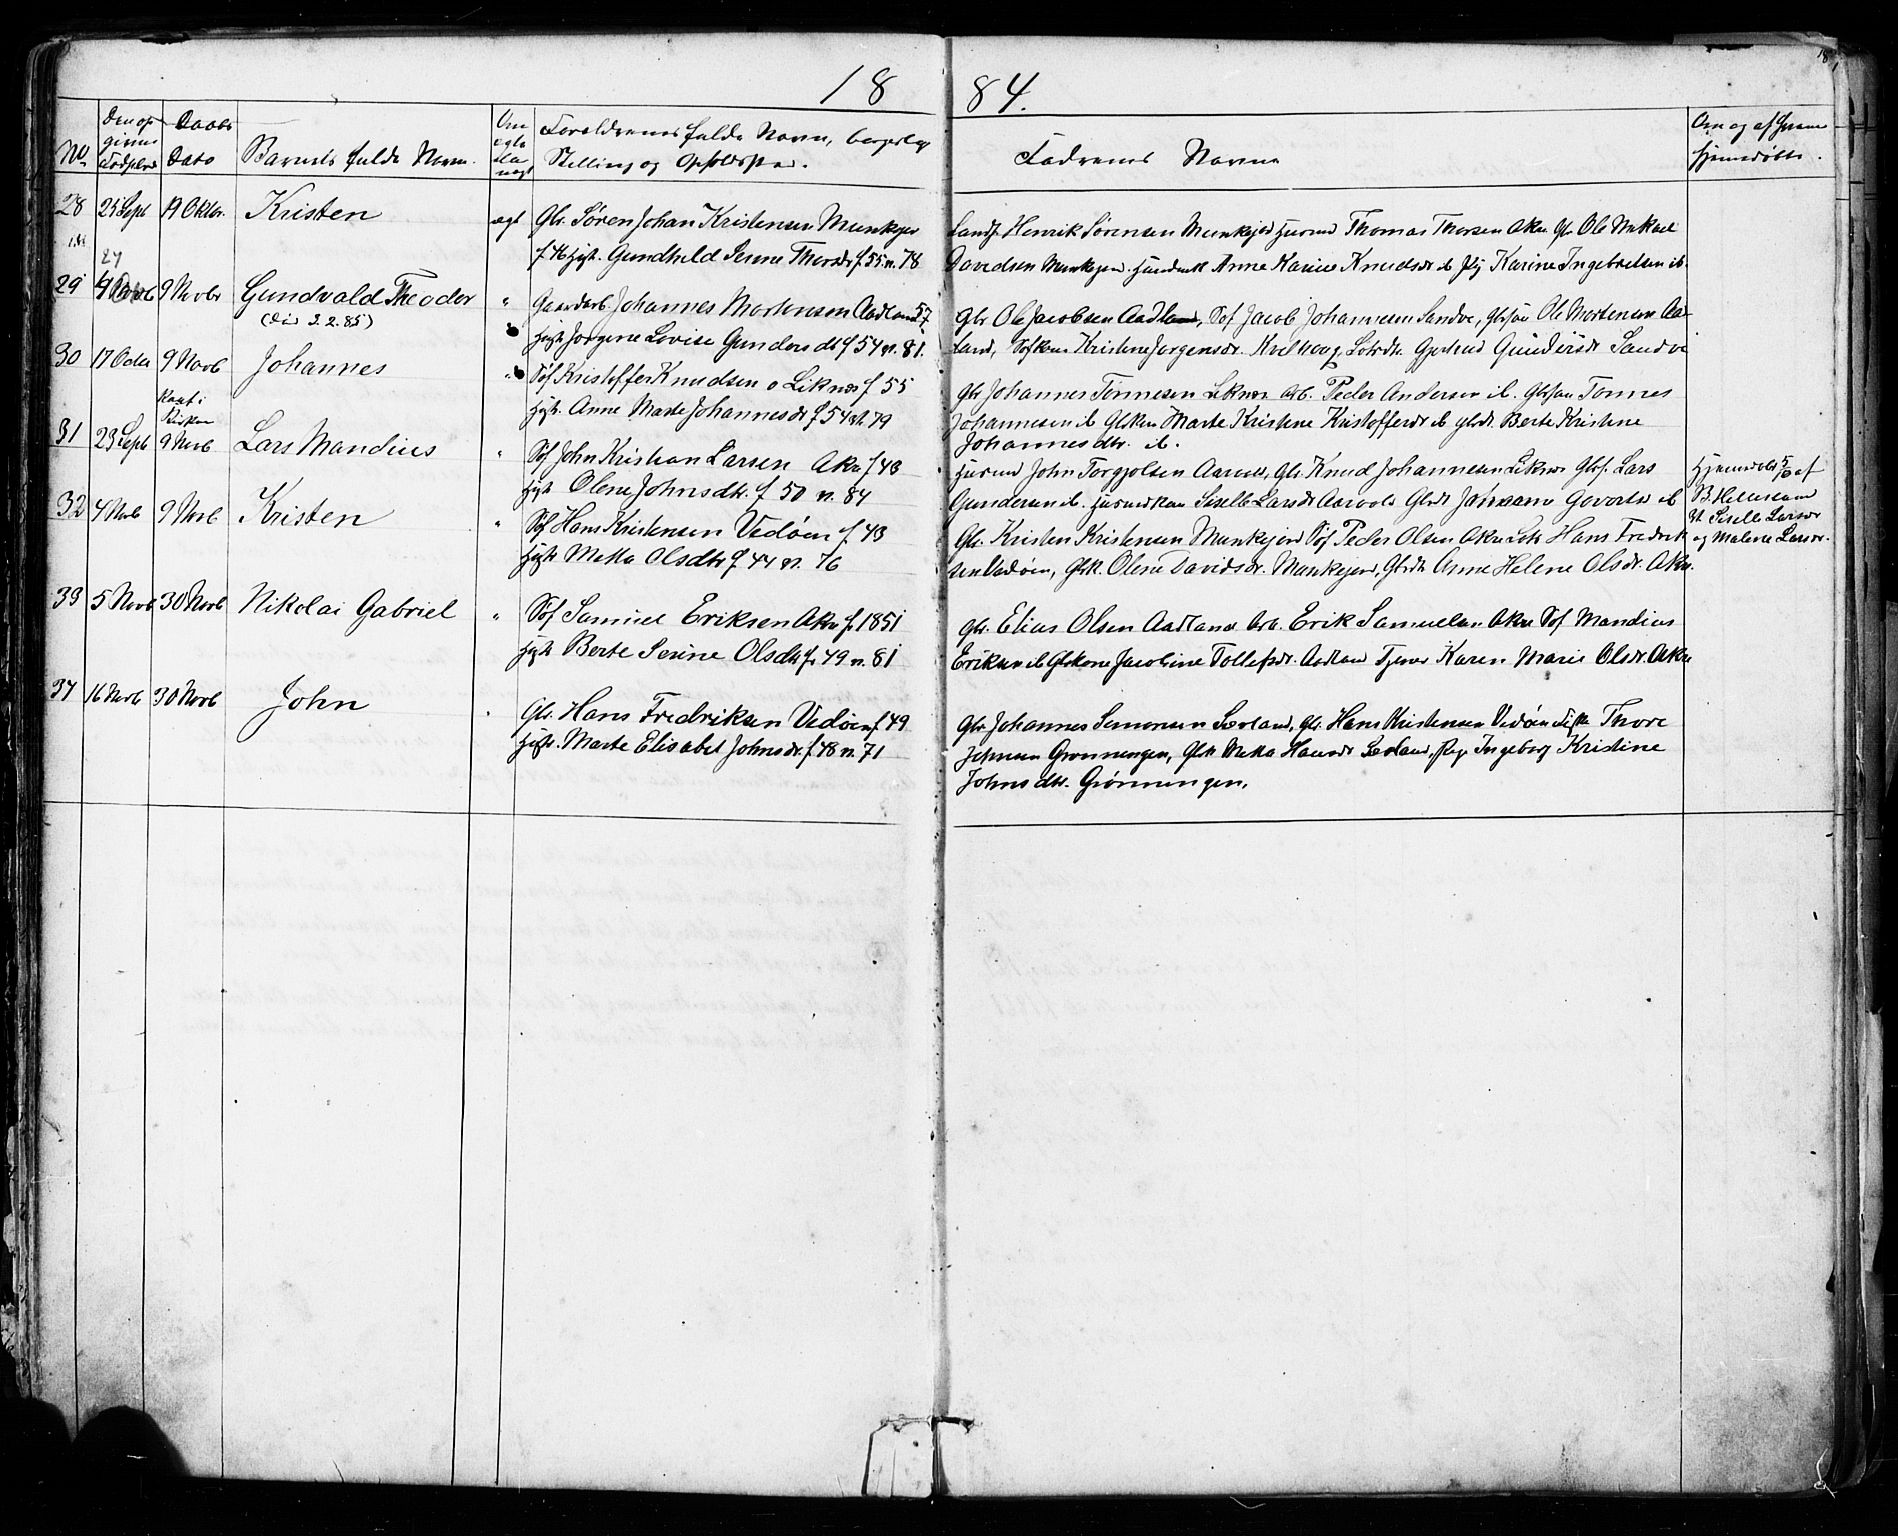 18 84.
No
Den op
givne
Fødselsd
Daabs
Dato
Barnets fulde Navn.
Om
ægte
ela
uægt
Forældrenes fulde Navn, borgerlige
Stilling og Opholdssted.
Faddernes Navne
Om og af hvem
hjemmedøbt.
28 25 Sept 19 Oktbr. Kristen ægt Gbr. Søren Johan Kristensen Munkejor
f. 46 Hgst. Gundhild Serine Thorsdr f 55 n. 78
Landh. Henrik Sørensen Munkejord Husmd Thomas Thorsen Akre Gbr Ole Mikael
Davidsen Munkejord. Karine Anne Karine Knudsdr ib Pig Karine Ingebretsen ib.
29 4 Novb 9 Novbr Gundvald Theodor " Gaardarb. Johannes Mortensen Aadland 57
(Død 2.2.85)
Hgst Jørgine Lovise Gunders dtr f 54 n. 81.
Gbr Ole Jacobsen Aadland, Søf Jacob Johannesen Sandve, Gbrsøn Ole Mortensen Aad-
land, Søfkone Kristine Jørgensdr. Kvilhoug, Gjertrud Gundersdr Sandve
30 17 Octbr 9 Novb Johannes " Søf Kristoffer Knudsen o Liknes f 55
Hgst. Anne Marte Johannesdr f 54 n. 79
Gbr Johannes Tønnesen Liknes Arb. Peder Andersen ib. Gbrsøn Tønnes
Johannesen ib Gbrkon Marte Kristine Kristoffersdr ib gbrdr. Berte Kristine
Johannesdtr. ib.
Kast i
Kirken
31 23 Sept 9 Novb Lars Mandius " Søf John Kristian Larsen Akre f 48
Hgst Olene Johnsdtr. f 50 n. 84
Husmd John Torgjolsen Aarvold, Gbr. Knud Johannesen Liknes Gbrs. Lars
Gundersen ib. Husmdkon Siselle Larsdr Aarvold Gbrdr Johanne Govertsd ib
Hjemmedøbt 5/10 af
B. Helmesland
Vt. Siselle Larsdr
og Malene Larsdr.
32 4 Novb 9 Novb Kristen " Søf Hans Kristensen Vedøen f 43
Hgst Metta Olsdtr f 44 n. 76
Gbr. Kristen Kristensen Munkejord Søf Peder Olsen Akre Lots Hans Fredrik
sen Vedøen, Gbrk. Olene Davidsdr. Munkejord, Gbrdr Anne Helene Olsdr. Akre.
33 5 Novb 30 Novb Nikolai Gabriel " Søf Samuel Eriksen Akre f. 1851
Hgst Berte Serine Olsdtr f. 49 n. 81
Gbr. Elias Olsen Aadland Arb. Erik Samuelsen Akre Søf Mandius
Eriksen ib Gbrkone Jacobine Tollefsdr. Aadland Tjener Karen Marie Olsdr. Akre
34 16 Novb 30 Novb John " Gbr. Hans Fredriksen Vedøen f 49
Hgst. Marte Elisabet Johnsdr. f. 48 n. 71
Gbr Johannes Simonsen Sevland, Gbr. Hans Kristensen Vedøen Fisk Thore
Johnsen Grønningen, Gbrk Metta Hansdr Sevland, Pige Ingeborg Kristine
Johnsdtr. Grønningen.